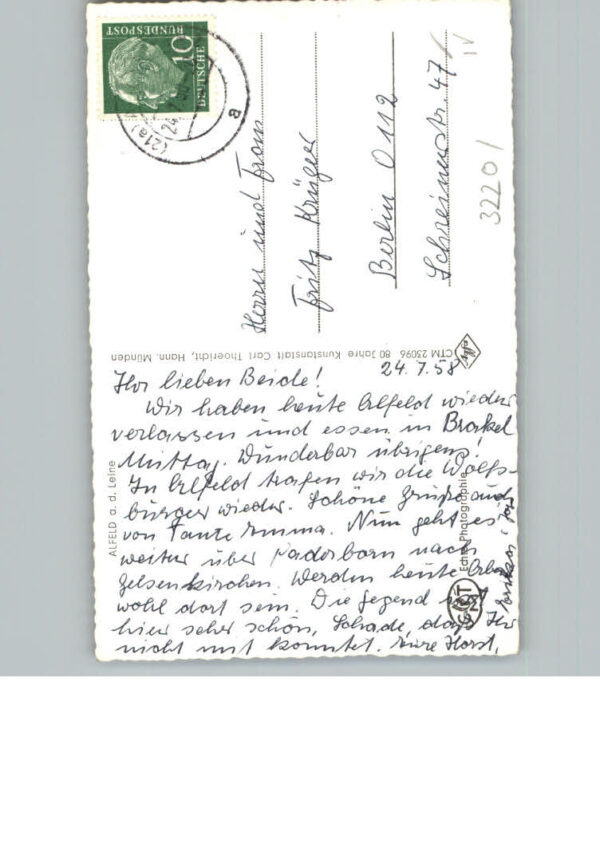 DEUTSCHE
BUNDESPOST
10
(21a)
24.
B
Herrn und Frau
Fritz Krüger
Berlin O 112
Schreinerstr. 47
IV
3220/
CTM 23096 80 Jahre Kunstanstalt Carl Thoericht, Hann. Münden
ALFELD a. d. Leine
Echte Photographie
24.7.58
Ihr lieben Beide!
Wir haben heute Alfeld wieder
verlassen und essen in Brakel
Mittag. Wunderbar übrigens!
In Alfeld trafen wir die Wolfs-
burger wieder. Schöne Grüße auch
von Tante Emma. Nun geht es
weiter über Paderborn nach
Gelsenkirchen. Werden heute Abend
wohl dort sein. Die Gegend ist
hier sehr schön, Schade, daß Ihr
nicht mit konntet. Eure Horst,